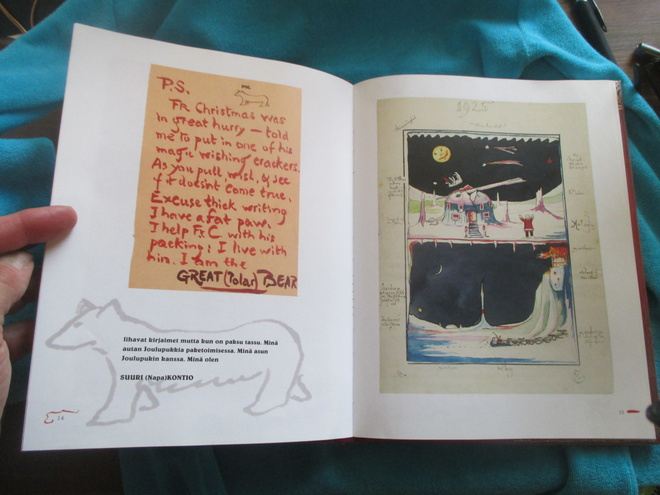 P.S.
Fr Christmas was
in great hurry — told
me to put in one of his
magic wishing crackers.
As you pull, wish, & see
if it doesn't come true.
Excuse thick writing
I have a fat paw.
I help Fr.C. with his
packing: I live with
him. I am the
GREAT (Polar) BEAR
lihavat kirjaimet mutta kun on paksu tassu. Minä
autan Joulupukkia paketoimisessa. Minä asun
Joulupukin kanssa. Minä olen
SUURI (Napa)KONTIO
14
1925